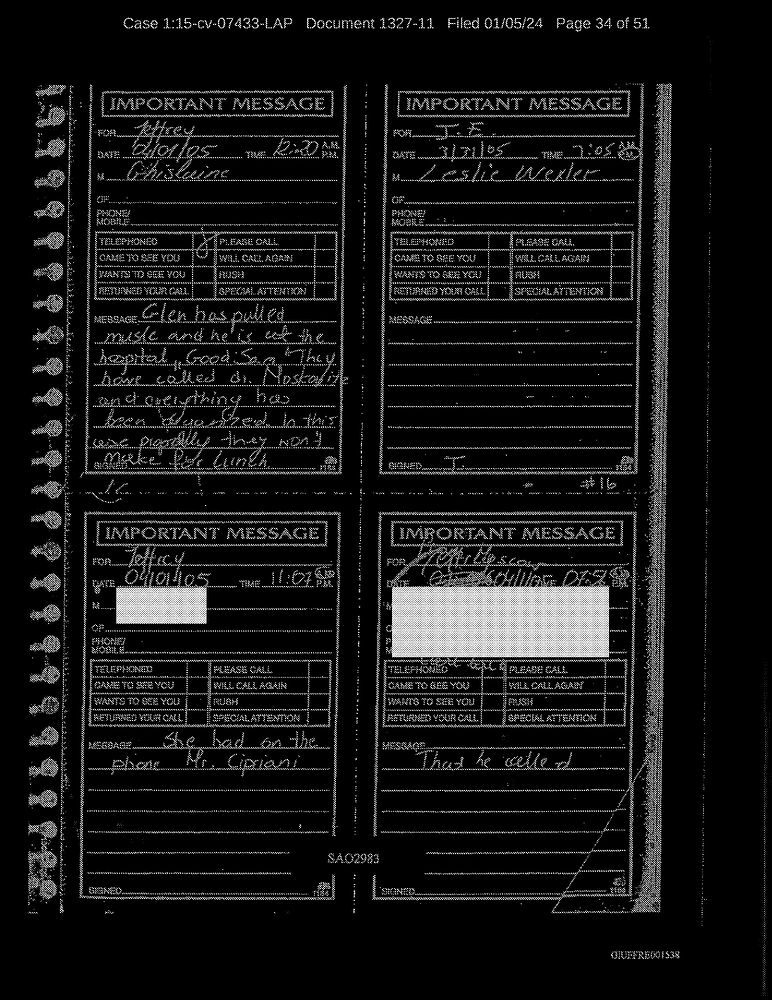 Case 1:15-cv-07433-LAP Document 1327-11 Filed 01/05/24 Page 34 of 51
IMPORTANT MESSAGE
FOR Jeffrey
DATE 04/01/05 TIME 12:20 A.M. P.M.
M Ghislaine
OF
PHONE/
MOBILE
TELEPHONED PLEASE CALL
CAME TO SEE YOU WILL CALL AGAIN
WANTS TO SEE YOU RUSH
RETURNED YOUR CALL SPECIAL ATTENTION
MESSAGE Glen has pulled
muscle and he is at the
hospital "Good Sam" They
have called dr. Moskowitz
and everything has
been organized. In this
case they won't
SIGNED Make for lunch
1184
IMPORTANT MESSAGE
FOR J.E.
DATE 3/31/05 TIME 7:05 A.M. P.M.
M Leslie Wexler
OF
PHONE/
MOBILE
TELEPHONED PLEASE CALL
CAME TO SEE YOU WILL CALL AGAIN
WANTS TO SEE YOU RUSH
RETURNED YOUR CALL SPECIAL ATTENTION
MESSAGE
SIGNED J.
1184
#16
IMPORTANT MESSAGE
FOR Jeffrey
DATE 04/01/05 TIME 11:07 A.M. P.M.
M
OF
PHONE/
MOBILE
TELEPHONED PLEASE CALL
CAME TO SEE YOU WILL CALL AGAIN
WANTS TO SEE YOU RUSH
RETURNED YOUR CALL SPECIAL ATTENTION
MESSAGE She had on the
phone Mr. Cipriani
SIGNED
1184
IMPORTANT MESSAGE
FOR
DATE TIME
TELEPHONED PLEASE CALL
CAME TO SEE YOU WILL CALL AGAIN
WANTS TO SEE YOU RUSH
RETURNED YOUR CALL SPECIAL ATTENTION
MESSAGE
That he called
SIGNED
1184
SAO2983
GIUFFRE001538